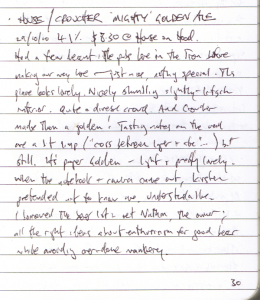 · HOUSE / CROUCHER 'MIGHTY' GOLDEN ALE
29/10/10 4.1% $8.50 @ House on Hood.
Had a few beers the pubs here in the Tron before
making our way here – just nice, nothing special. This
place looks lovely. Nicely shambling nightly-kitsch
interior. Quite a diverse crowd. And Croucher
made them a golden! Tasting notes on the wall
are a bit limp ('cross between lager & ale'...) but
still. It's proper Golden – light & pretty lovely.
When the notebook & camera came out, Kirsten
pretended not to know me, understandable.
I honoured the beer list & met Nathan, the owner;
all the right ideas about enthusiasm for good beer
while avoiding overdone wankery.
30